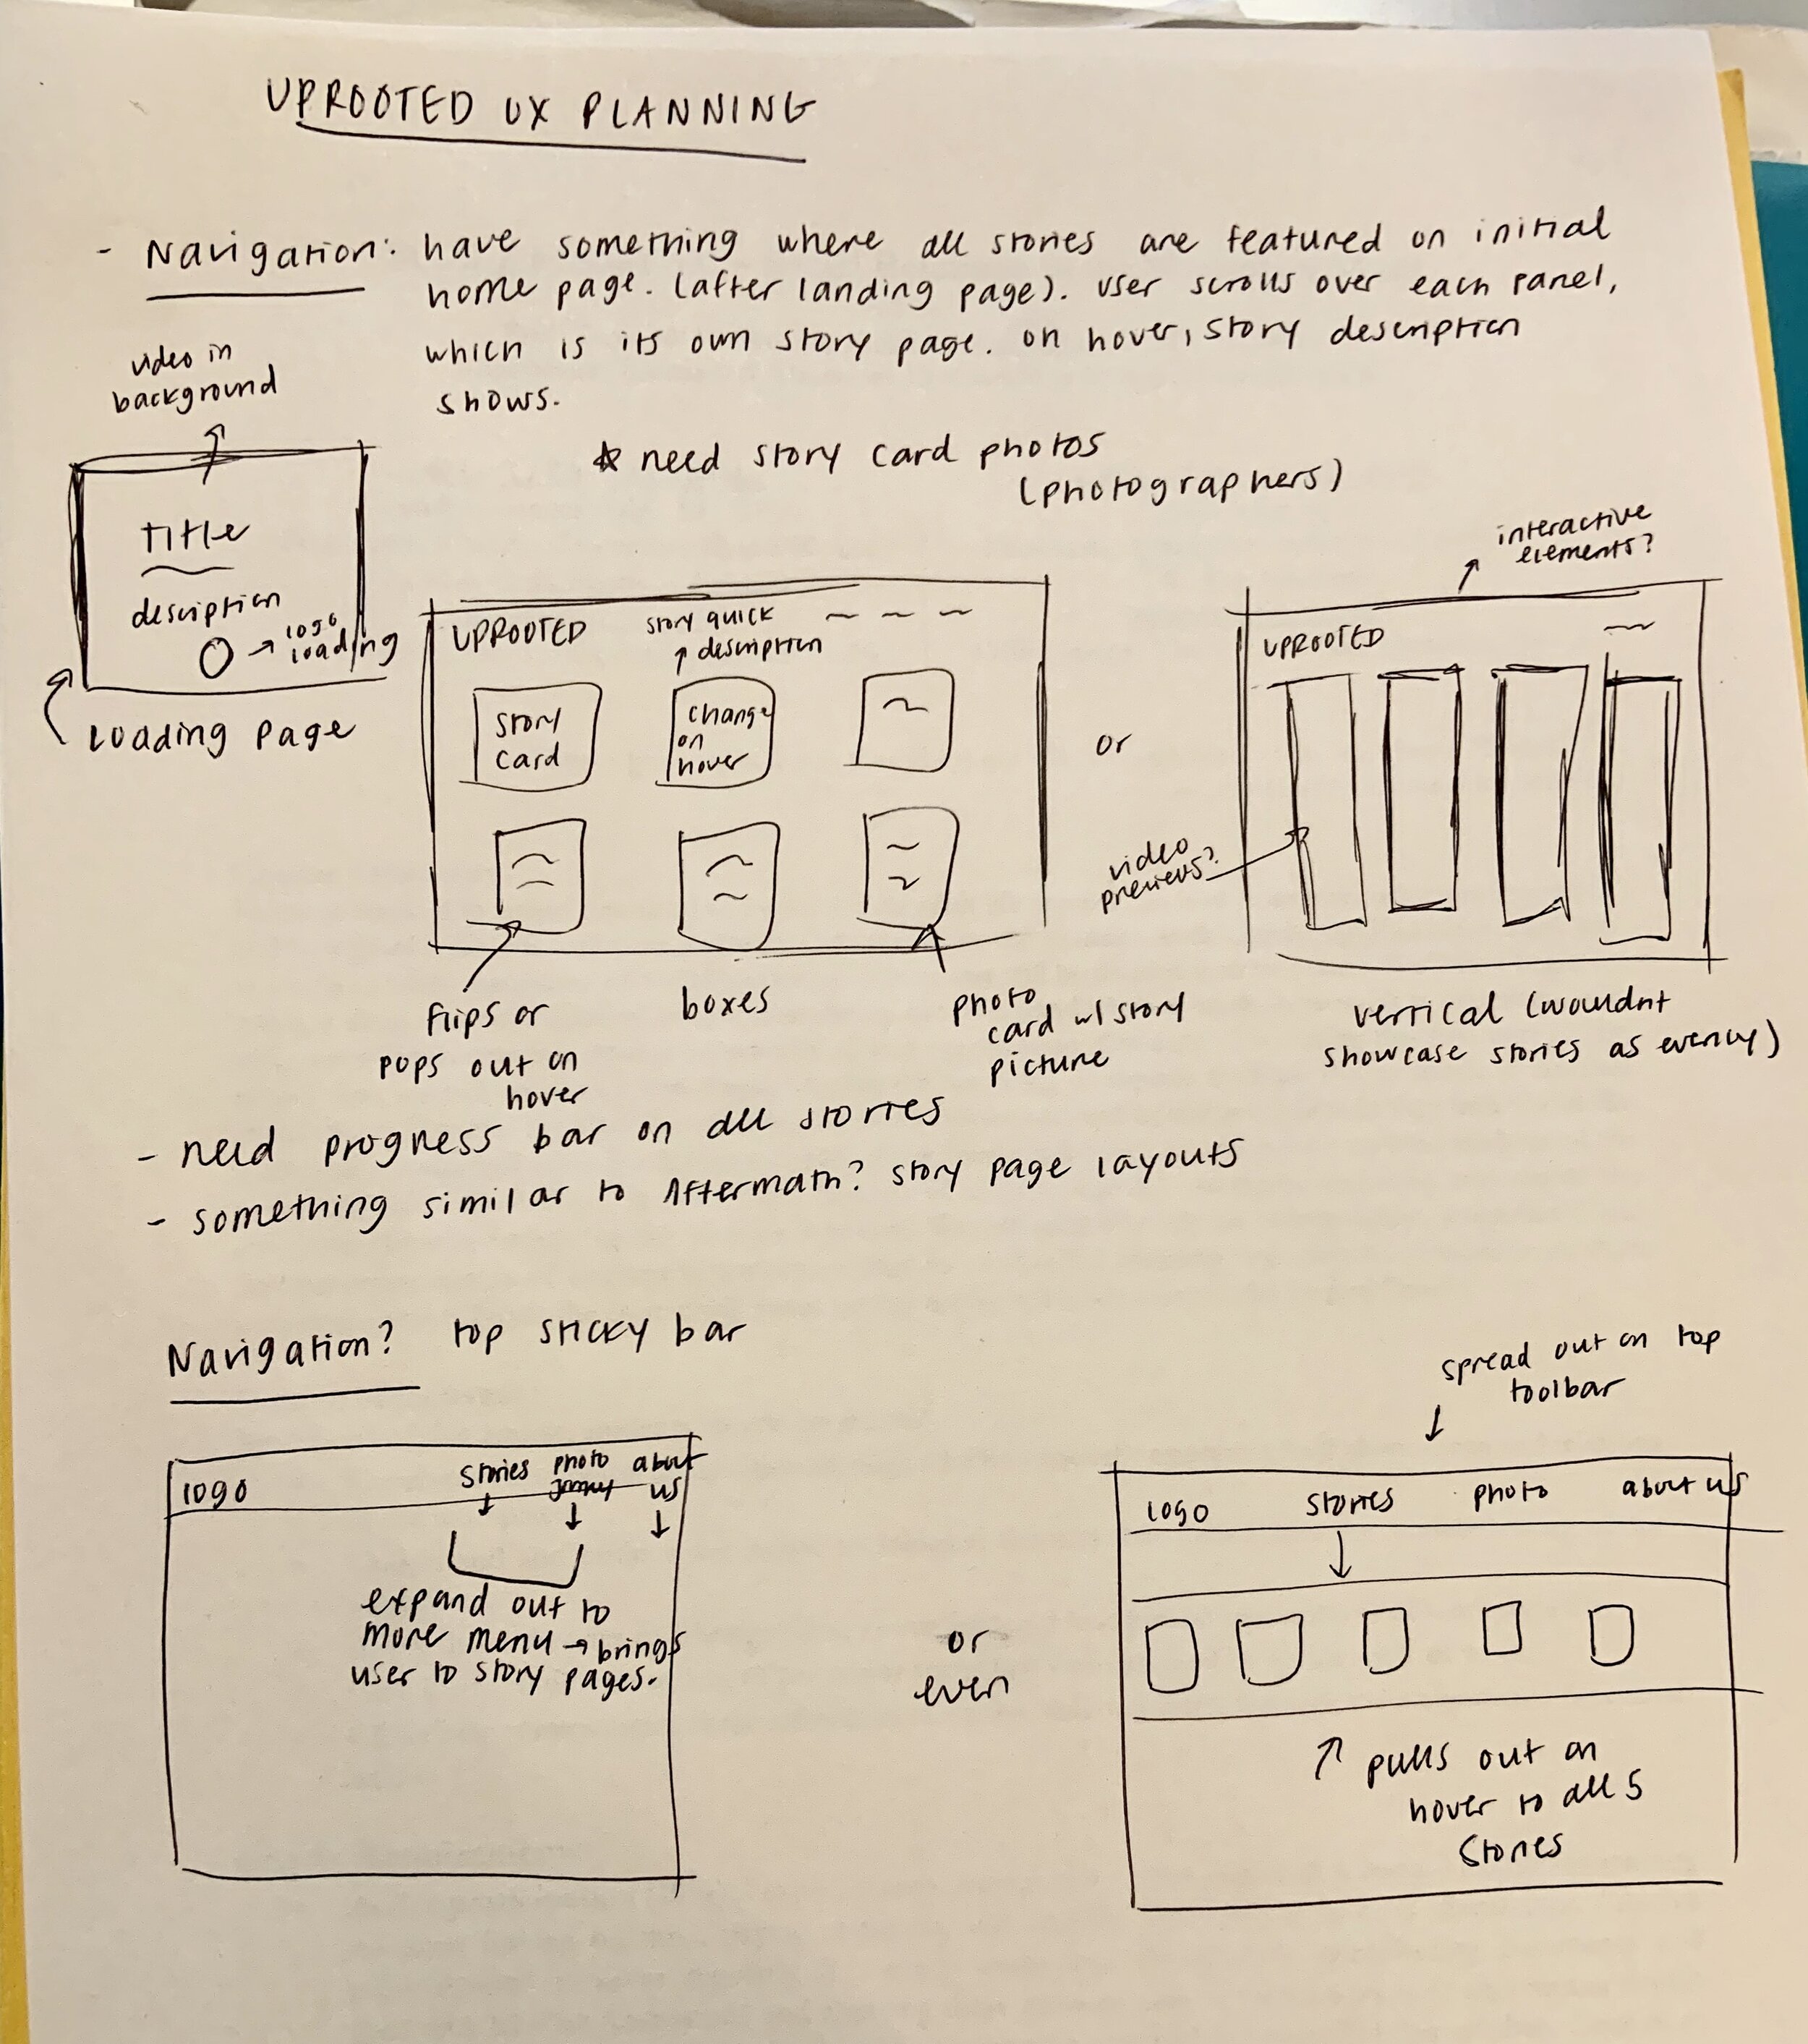 UPROOTED UX PLANNING
- Navigation: have something where all stories are featured on initial
home page. (after landing page). user scrolls over each panel,
which is its own story page. on hover, story description
shows.
video in
background
☆ need story card photos
(photographers)
title
description
→ logo
loading
loading page
UPROOTED
story quick
description
story
card
change
on
hover
flips or
pops out on
hover
boxes
photo
card w/ story
picture
or
interactive
elements?
UPROOTED
video
previews?
vertical (wouldnt
showcase stories as evenly)
- need progress bar on all stories
- something similar to Aftermath? story page layouts
Navigation? top sticky bar
logo
stories
photo
about
us
expand out to
more menu → brings
user to story pages.
or
even
spread out on top
toolbar
logo stories photo about us
pulls out on
hover to all 5
stories